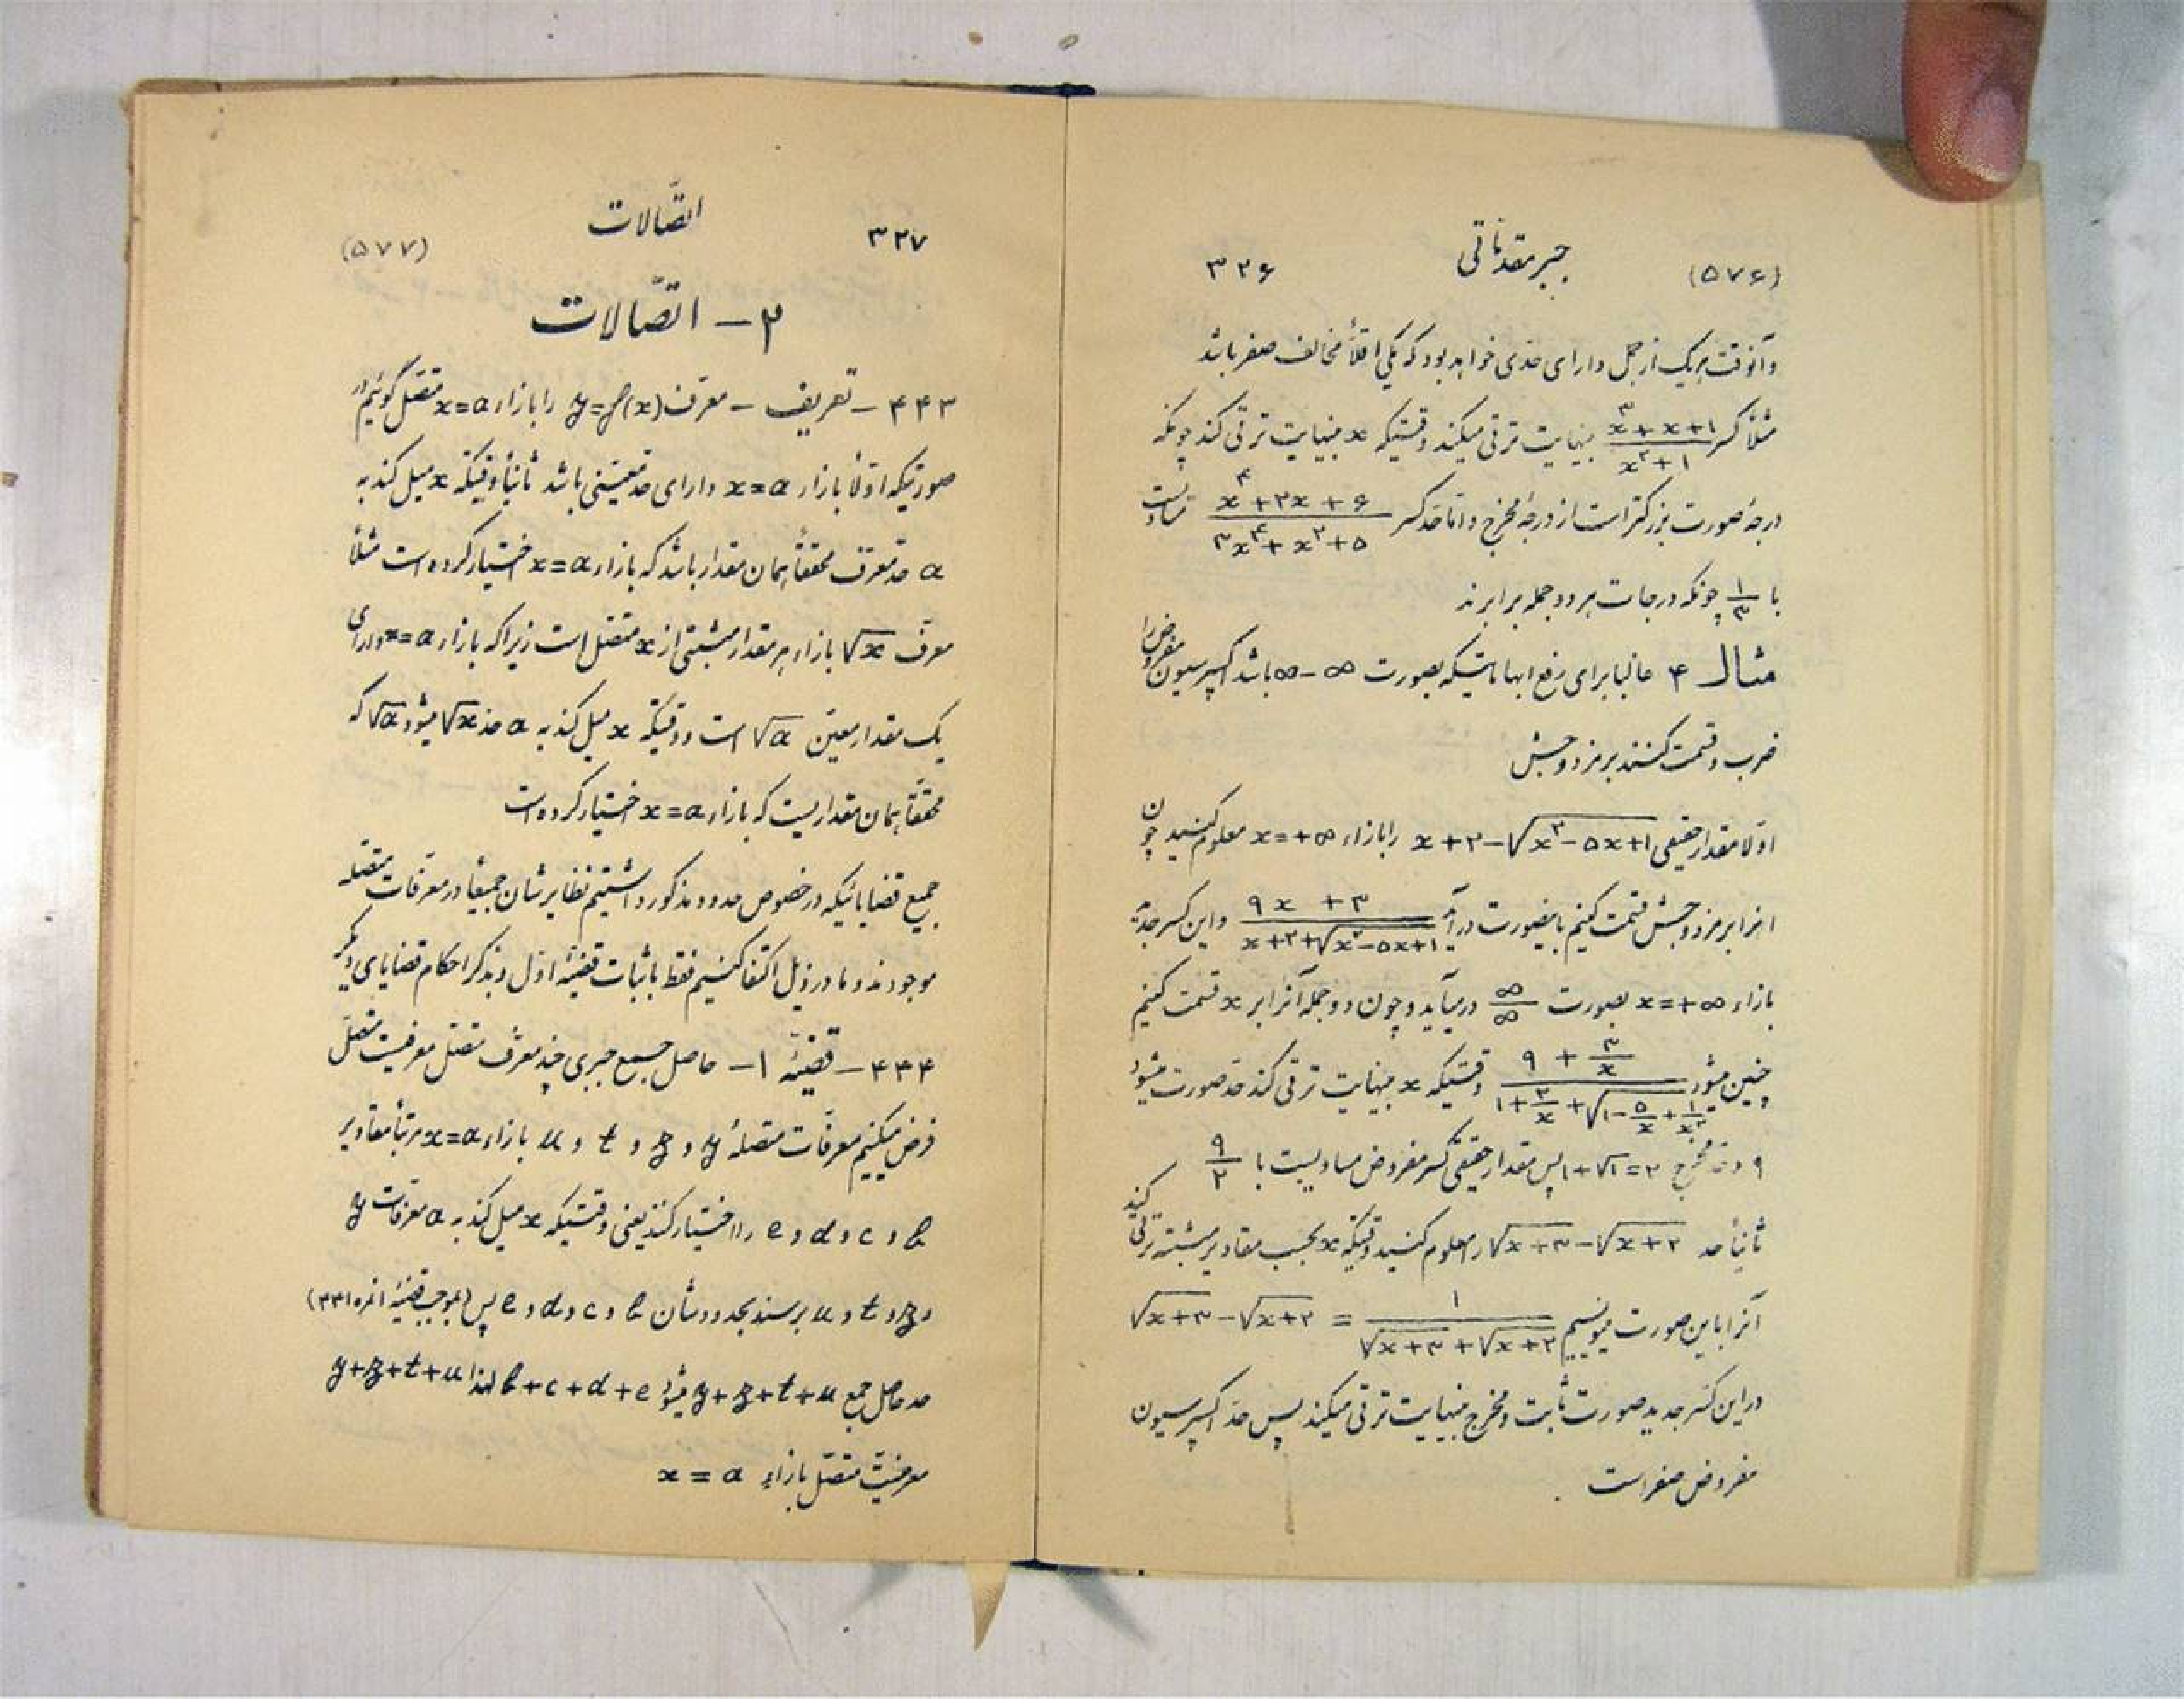 (۵۷۶) جبر مقدماتی ۳۲۶
و آنوقت هر یک از جمل دارای حدی خواهد بود که یکی اقلاً مخالف صفر باشد
مثلاً کسر (x^۳+x+۱)/(x^۲+۱) بینهایت ترقی میکند وقتیکه x بینهایت ترقی کند چونکه
درجهٔ صورت بزرگتر است از درجهٔ مخرج و اما حد کسر (x^۴+۲x+۶)/(۳x^۴+x^۳+۵) مساویست
با ۱/۳ چونکه درجات هر دو جمله برابرند
مثال ۴ غالبا برای رفع ابهاماتیکه بصورت ∞-∞ باشد اکسپرسیون مفروض را
ضرب و قسمت کنند بر مزدوجش
اولا مقدار حقیقی x+۲-√(x^۲-۵x+۱) را بازاء x=+∞ معلوم کنید چون
انرا بر مزدوجش قسمت کنیم باینصورت درآید (۹x+۳)/(x+۲+√(x^۲-۵x+۱)) و این کسر جدید
بازاء x=+∞ بصورت ∞/∞ درمیآید و چون دو جمله آنرا بر x قسمت کنیم
چنین میشود (۹+۳/x)/(۱+۲/x+√(۱-۵/x+۱/x^۲)) وقتیکه x بینهایت ترقی کند حد صورت میشود
۹ و حد مخرج ۱+√۱=۲ پس مقدار حقیقی کسر مفروض مساویست با ۹/۲
ثانیاً حد √(x+۳)-√(x+۲) را معلوم کنید وقتیکه x بحسب مقادیر مثبته ترقی کند
آنرا باین صورت مینویسیم √(x+۳)-√(x+۲) = ۱/(√(x+۳)+√(x+۲))
در این کسر جدید صورت ثابت و مخرج بینهایت ترقی میکند پس حد اکسپرسیون
مفروض صفر است
۳۲۷ اتّصالات (۵۷۷)
۲- اتّصالات
۴۴۳- تعریف - معرف y=f(x) را بازاء x=a متصل گوئیم در
صورتیکه اولاً بازاء x=a دارای حد معیّنی باشد ثانیاً وقتیکه x میل کند به
a حد معرف محققاً همان مقدار باشد که بازاء x=a اختیار کرده است مثلاً
معرف √x بازاء هر مقدار مثبتی از x متصل است زیرا که بازاء x=a دارای
یک مقدار معین √a است و وقتیکه x میل کند به a حد √x میشود √a که
محققاً همان مقداریست که بازاء x=a اختیار کرده است
جمیع قضایائیکه در خصوص حدود مذکور داشتیم نظایرشان جمیعاً در معرفات متصله
موجودند و ما در ذیل اکتفا کنیم فقط باثبات قضیهٔ اول و بذکر احکام قضایای دیگر
۴۴۴- قضیّهٔ ۱- حاصل جمع جبری چند معرف متصل معرفیست متصل
فرض میکنیم معرفات متصلهٔ y و z و t و u بازاء x=a مرتباً مقادیر
b و c و d و e را اختیار کنند یعنی وقتیکه x میل کند به a معرفات y
و z و t و u برسند بحدودشان b و c و d و e پس (بموجب قضیهٔ ۱ نمره ۴۳۱)
حد حاصل جمع y+z+t+u میشود b+c+d+e لهذا y+z+t+u
معرفیست متصل بازاء x = a